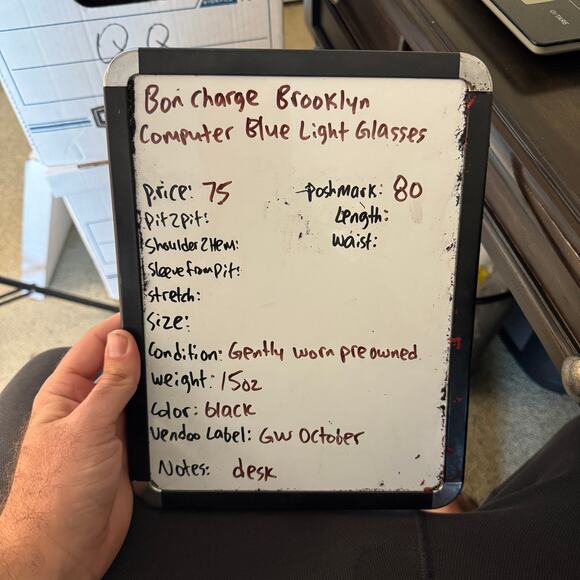 Bon Charge Brooklyn
Computer Blue Light Glasses
price: 75
poshmark: 80
pit2pit:
Length:
Shoulder2Hem:
waist:
Sleevefrompit:
stretch:
Size:
Condition: Gently worn preowned
weight: 15oz
Color: black
Vendoo Label: GW October
Notes: desk
QQ